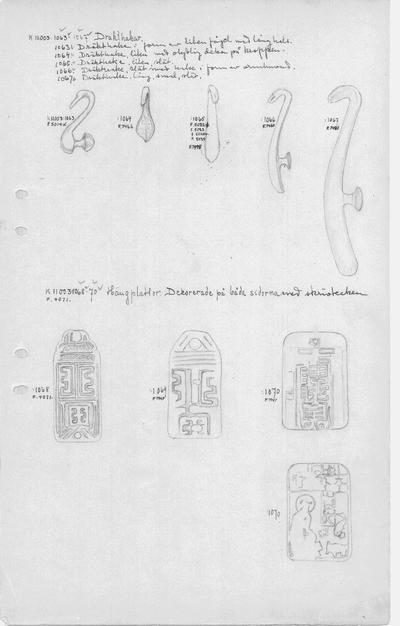 K 11003:1063-1067. Dräkthakar.
1063. Dräkthake i form av liten fågel med lång hals.
1064. Dräkthake, liten med otydlig dekor på kroppen.
1065. Dräkthake, liten, slät.
1066. Dräkthake, slät med hake i form av
1067. Dräkthake, lång, smal, slät.
K 11003:1063
:1064
:1065
:1066
:1067
K 11003:1068-70 Hängplattor. Dekorerade på båda sidorna med skrivtecken
P. 4071.
:1068
P. 4071.
:1069
:1070
:1070